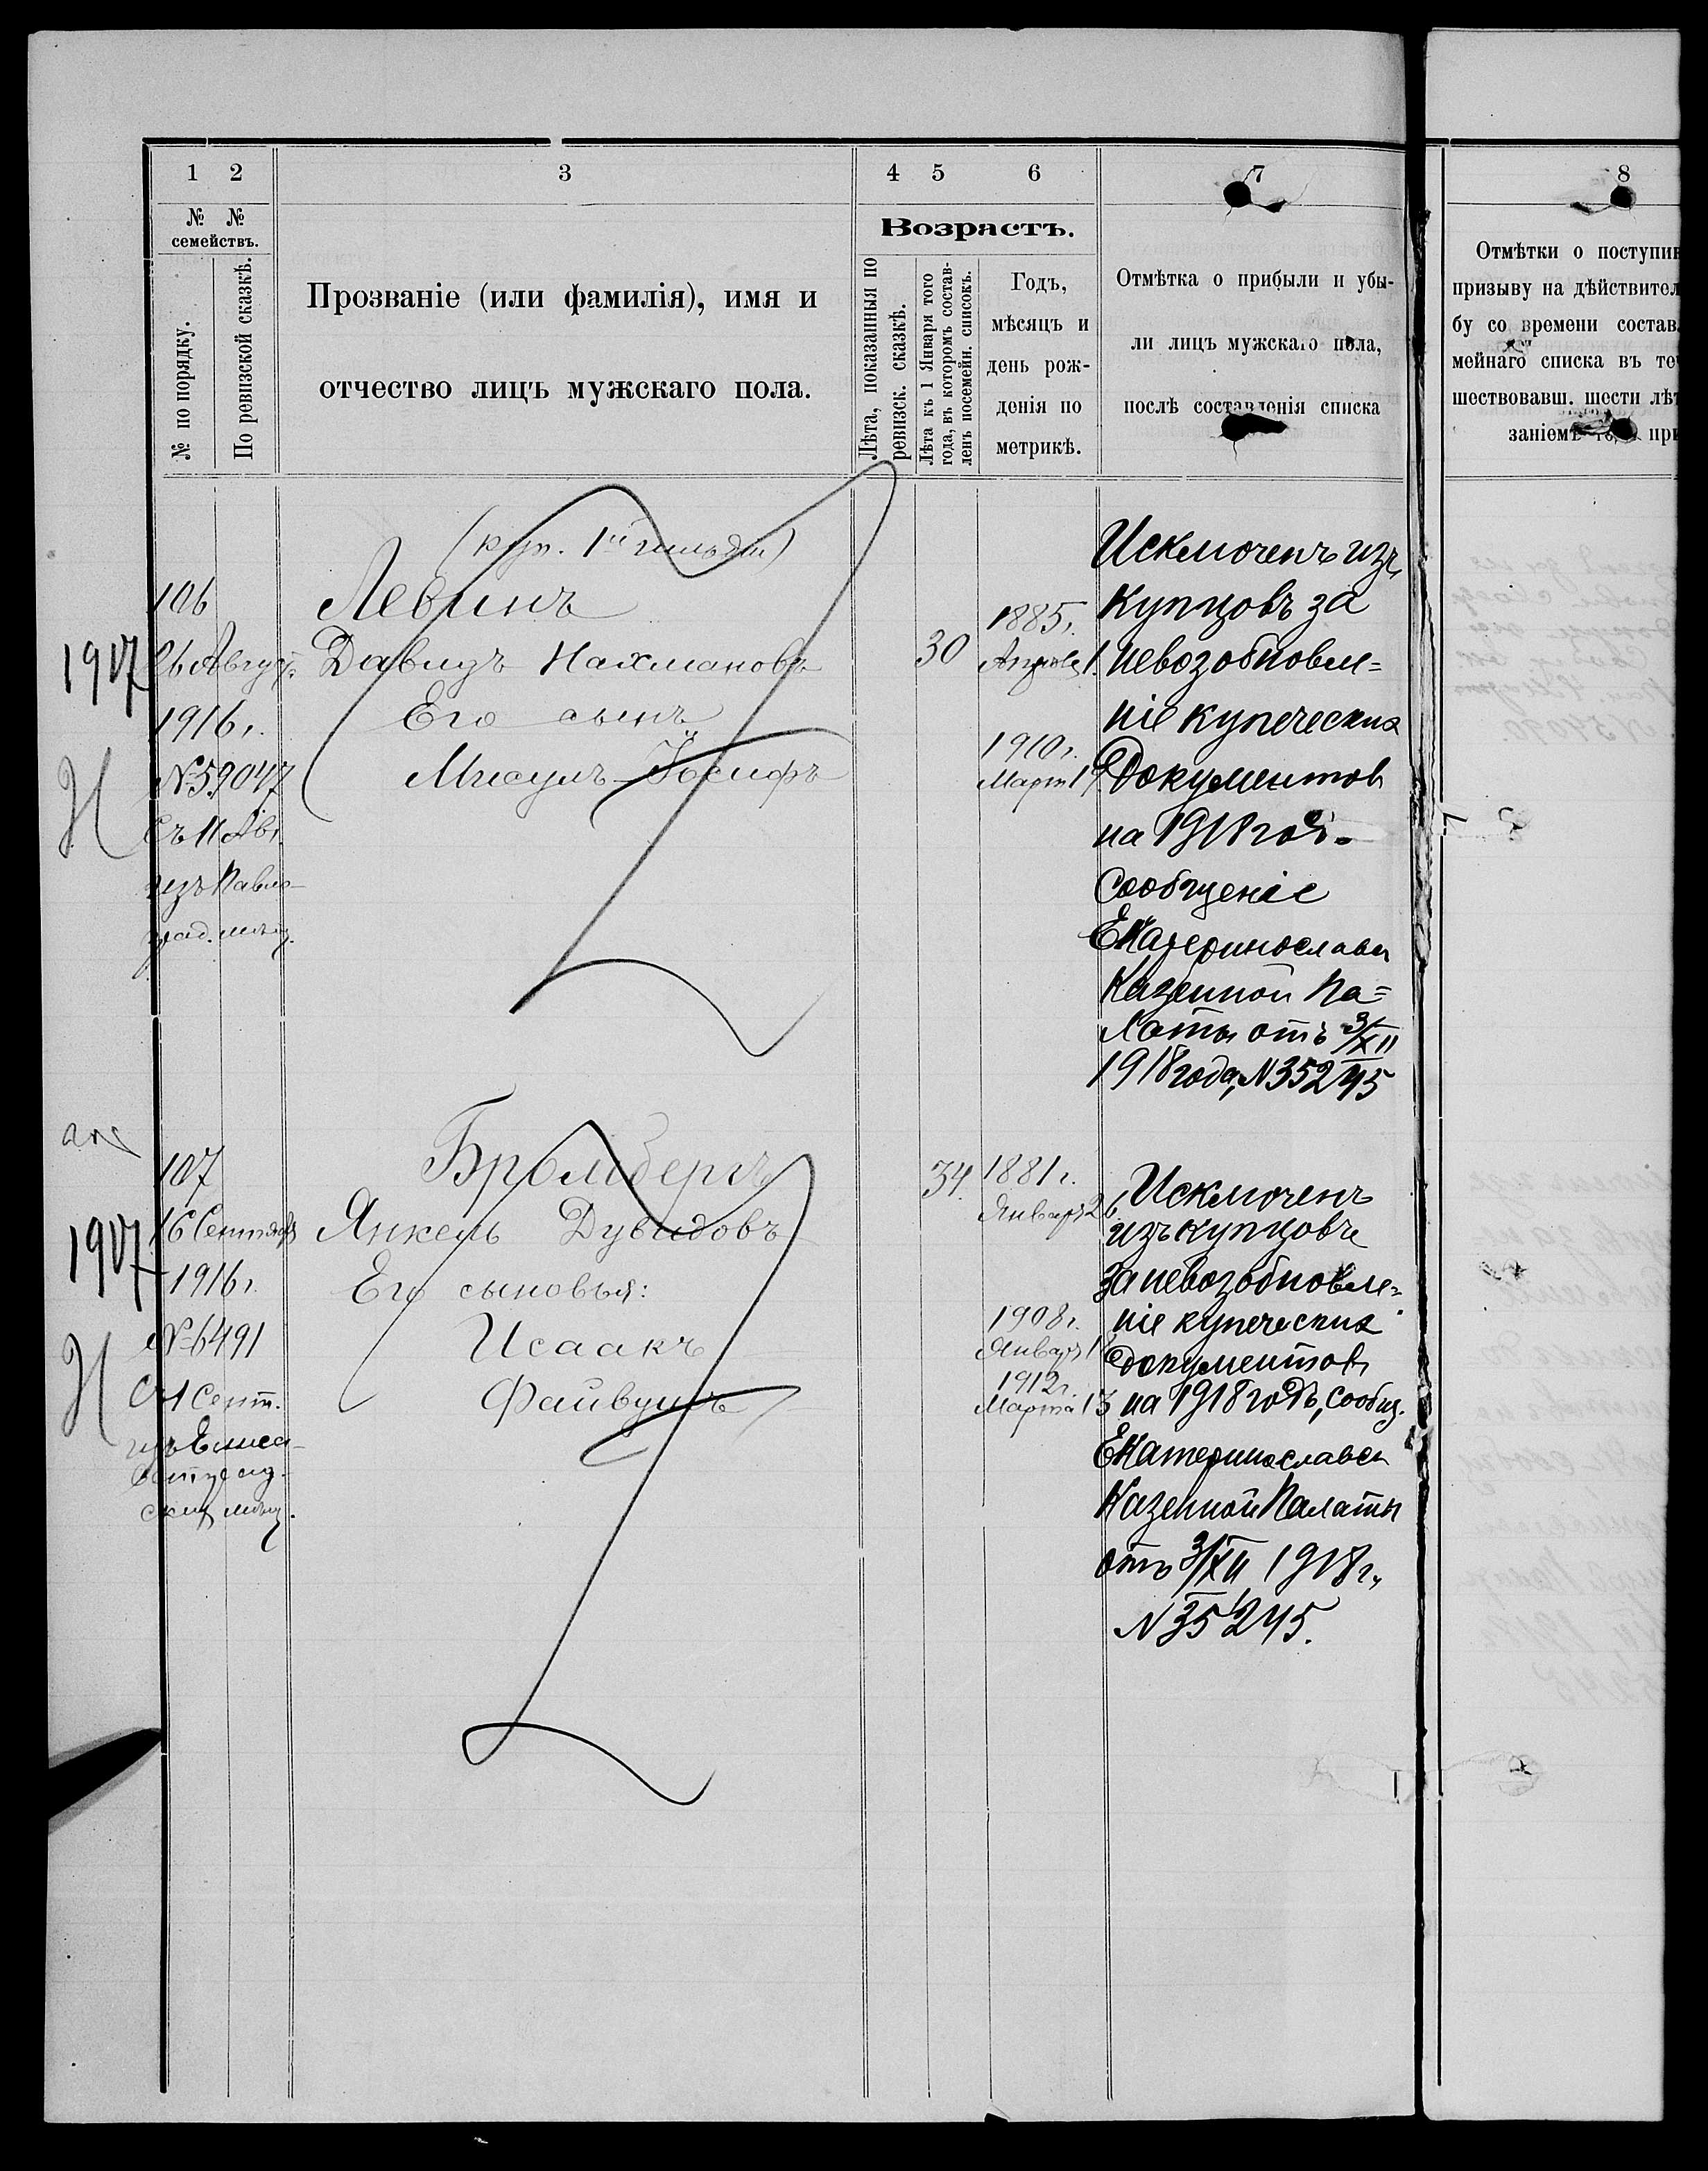 1 2 3 4 5 6 7 8
№ № семействъ.
№ по порядку.
По ревизской сказкѣ.
Прозваніе (или фамилія), имя и
отчество лицъ мужскаго пола.
Возрастъ.
Лѣта, показанныя по
ревизск. сказкѣ.
Лѣта къ 1 Января того
года, въ которомъ состав-
ленъ посемейн. списокъ.
Годъ,
мѣсяцъ и
день рож-
денія по
метрикѣ.
Отмѣтка о прибыли и убы-
ли лицъ мужскаго пола,
послѣ составленія списка
Отмѣтки о поступи
призыву на дѣйствител
бу со времени состав
мейнаго списка въ те
шествовавш. шести лѣ
заніемъ при
1917
106
26 Август.
1916 г.
№ 59047
Съ 11 Авг.
изъ Павло-
град. мѣщ.
(куп. 1й гильдіи)
Левинъ
Давидъ Нахмановъ
Его сынъ
Мисулъ-Іосифъ
30
1885 г.
Апрѣля 1.
1910 г.
Март 19
Исключенъ изъ
купцовъ за
невозобновле=
ніе купеческих
документов
на 1918 год-
Сообщеніе
Екатеринославск
Казенной Па=
латы отъ 3/XII
1918 года, № 35245
1917
107
16 Сентября
1916 г.
№ 6491
Съ 1 Сент.
изъ Елиса-
ветград-
ских мѣщ.
Бромбергъ
Янкель Дувидовъ
Его сыновья:
Исаакъ
Файвушъ
34.
1881 г.
Январ 26.
1908 г.
Январ 18
1912 г.
Марта 13
Исключенъ
изъ купцовъ
за невозобновле=
ніе купеческих
документовъ
на 1918 годъ, сообщ.
Екатеринославск
Казенной Палаты
отъ 3/XII 1918 г.,
№ 35245.